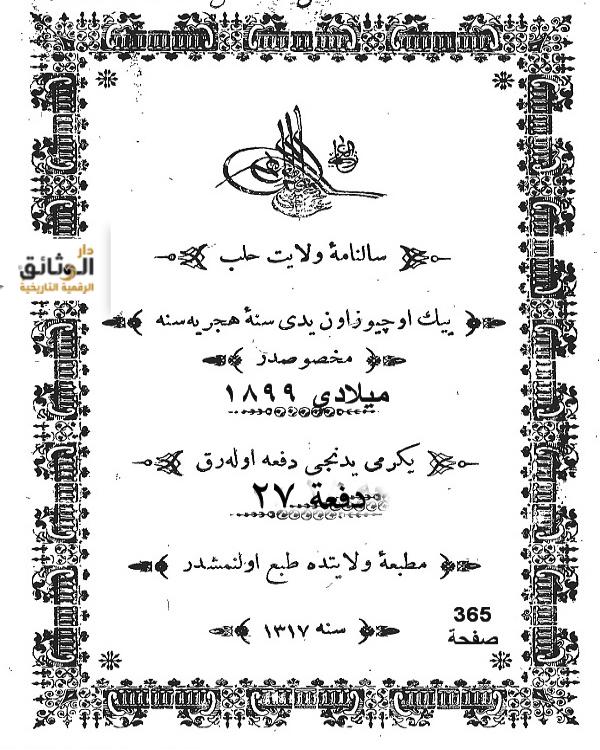 سالنامۀ ولايت حلب
بيك اوچيوز اون يدى سنۀ هجريه سنه
مخصوصدر
ميلادي ١٨٩٩
يكرمى يدنجى دفعه اوله رق
دفعة ٢٧
مطبعۀ ولايتده طبع اولنمشدر
سنه ١٣١٧
365
صفحة
دار
الوثائق
الرقمية التاريخية